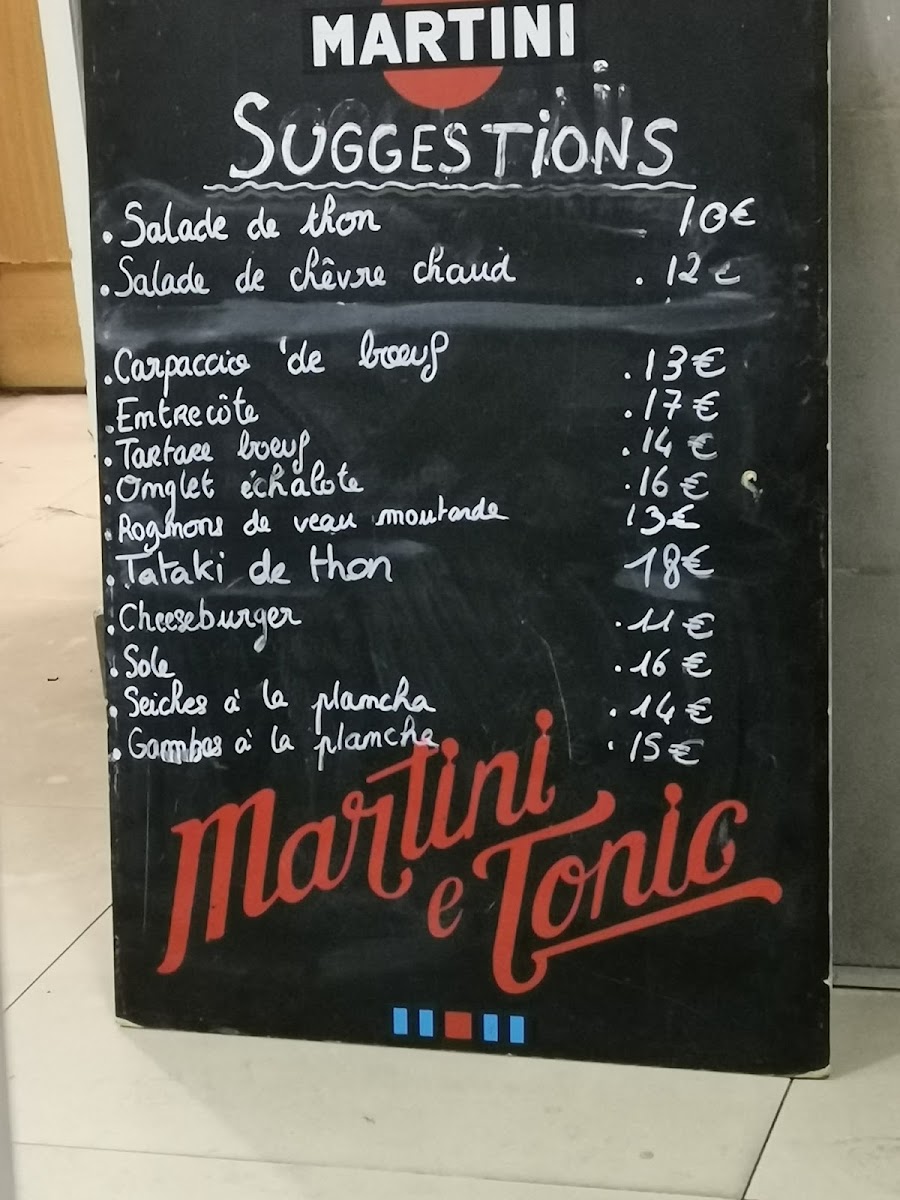 MARTINI
SUGGESTIONS
. Salade de thon 10€
. Salade de chêvre chaud . 12€
. Carpaccio de bœuf . 13€
. Entrecôte . 17€
. Tartare boeuf . 14€
. Onglet échalote . 16€
. Rognons de veau moutarde 13€
. Tataki de thon 18€
. Cheeseburger . 11€
. Sole . 16€
. Seiches à la plancha . 14€
. Gambas à la plancha . 15€
Martini
e Tonic